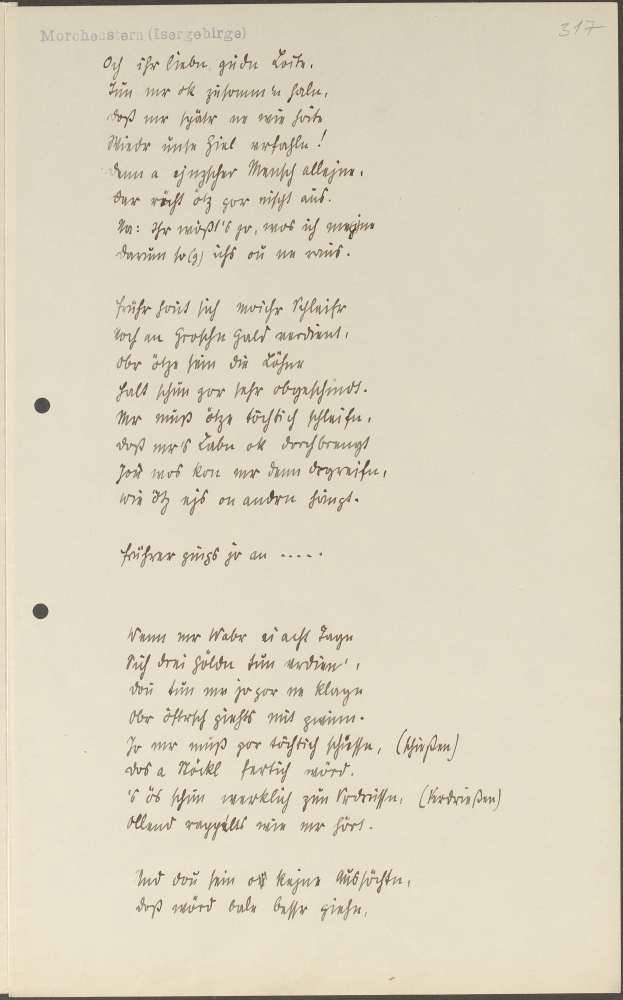 Morchenstern (Isergebirge)
317
Och ihr liebn gudn Loite,
Tun mr ok zusomm'n haln,
doß mr spätr ne wie hoite
Wiedr unse Ziel verfahln!
denn a ejnzscher Mensch allejne,
der röcht ötz gor nischt aus.
Na: Ihr wößt's jo, wos ich mejne
darum so(g) ichs ou ne raus.
Früher hout sich moichr Schleifr
Noch en Groschn Gald verdient,
Obr ötze sein die Löhne
Halt schun gor sehr obgeschindt.
Mr muß ötze töchtich schleifn,
doß mr's Labn ok dorchbrengt
Jou wos kon mr denn dergreifn,
wie ötz ejs on andrn hängt.
Früher gings jo an .....
Wenn mr Wabr ei acht Tage
Sich drei Göldn tun verdien',
dou tun me jo gor ne klage
Obr öftrsch giehts nit gwinn.
Jo mr muß gor töchtich schissn, (schießen)
dos a Stöckl fertich wörd.
's ös schun werklich zun Vrdrissn, (Verdrießen)
Ollend rappelts wie mr hört.
Und dou sein ok kejne Aussöchtn,
doß wörd bale bessr giehn,